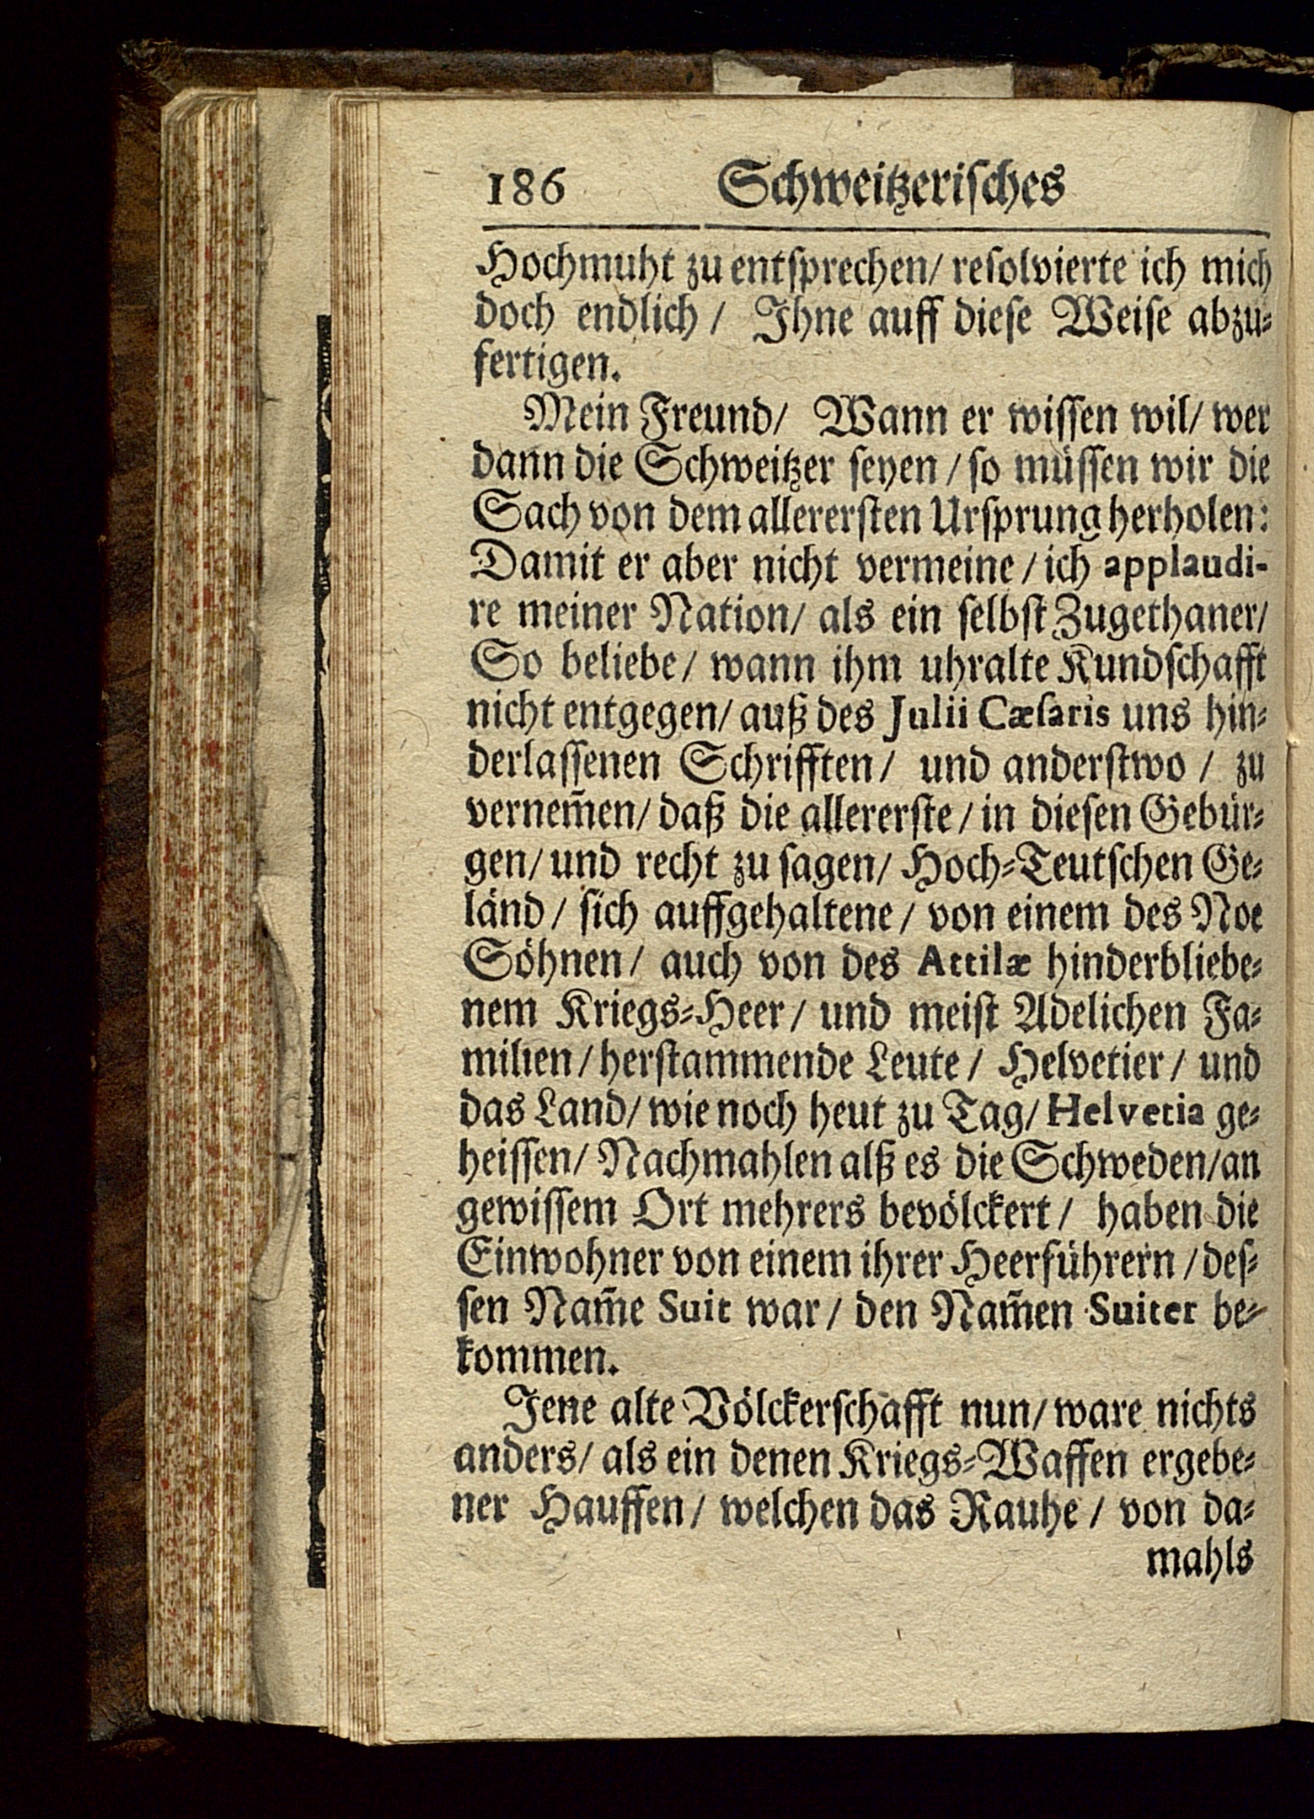 186 Schweitzerisches
Hochmuht zu entsprechen/ resolvierte ich mich
doch endlich / Ihne auff diese Weise abzu-
fertigen.
Mein Freund/ Wann er wissen wil/ wer
dann die Schweitzer seyen / so müssen wir die
Sach von dem allerersten Ursprung herholen:
Damit er aber nicht vermeine / ich applaudi-
re meiner Nation/ als ein selbst Zugethaner/
So beliebe/ wann ihm uhralte Kundschafft
nicht entgegen/ auß des Julii Cæsaris uns hin-
derlassenen Schrifften/ und anderstwo / zu
vernem̃en/ daß die allererste / in diesen Gebür-
gen/ und recht zu sagen/ Hoch-Teutschen Ge-
länd / sich auffgehaltene / von einem des Noe
Söhnen/ auch von des Attilæ hinderbliebe-
nem Kriegs-Heer / und meist Adelichen Fa-
milien / herstammende Leute / Helvetier / und
das Land/ wie noch heut zu Tag/ Helvetia ge-
heissen/ Nachmahlen alß es die Schweden/an
gewissem Ort mehrers bevölckert / haben die
Einwohner von einem ihrer Heerführern / des-
sen Nam̃e Suit war / den Nam̃en Suiter be-
kommen.
Jene alte Völckerschafft nun/ ware nichts
anders/ als ein denen Kriegs-Waffen ergebe-
ner Hauffen/ welchen das Rauhe / von da-
mahls